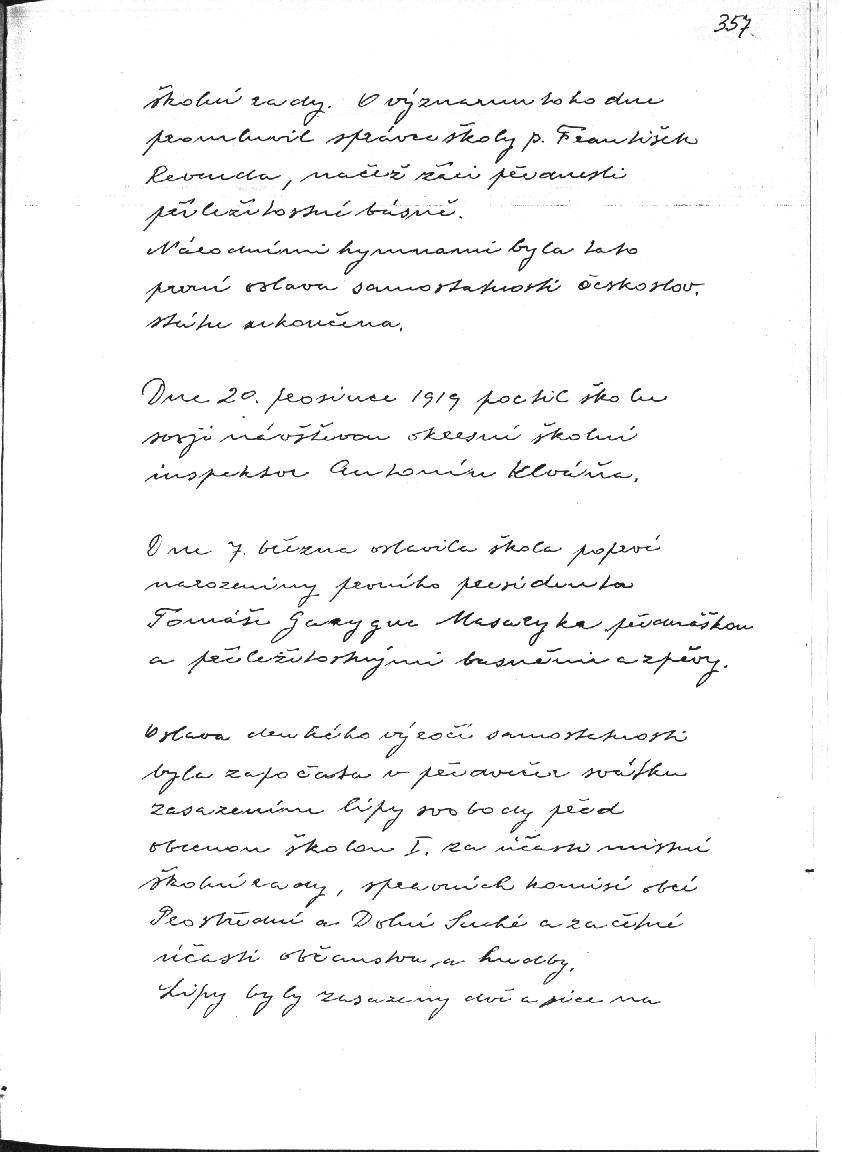 357
školní rady. O významu toho dne
promluvil správce školy p. František
Revenda, načež žáci přednesli
příležitostné básně.
Národními hymnami byla tato
první oslava samostatnosti českoslov.
státu zakončena.
Dne 20. prosince 1919 poctil školu
svojí návštěvou okresní školní
inspektor Antonín Klváňa.
Dne 7. března oslavila škola poprvé
narozeniny prvního presidenta
Tomáše Garygua Masaryka přednáškou
a příležitostnými básněmi a zpěvy.
Oslava druhého výročí samostatnosti
byla započata v předvečer svátku
zasazením lípy svobody před
obecnou školou I. za účasti místní
školní rady, správních komisí obcí
Prostřední a Dolní Suché a začetné
účasti občanstva a hudby.
Lípy byly zasazeny dvě a sice na